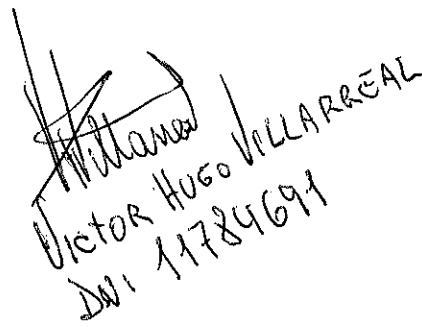 Villarreal
VICTOR HUGO VILLARREAL
DNI 11784691